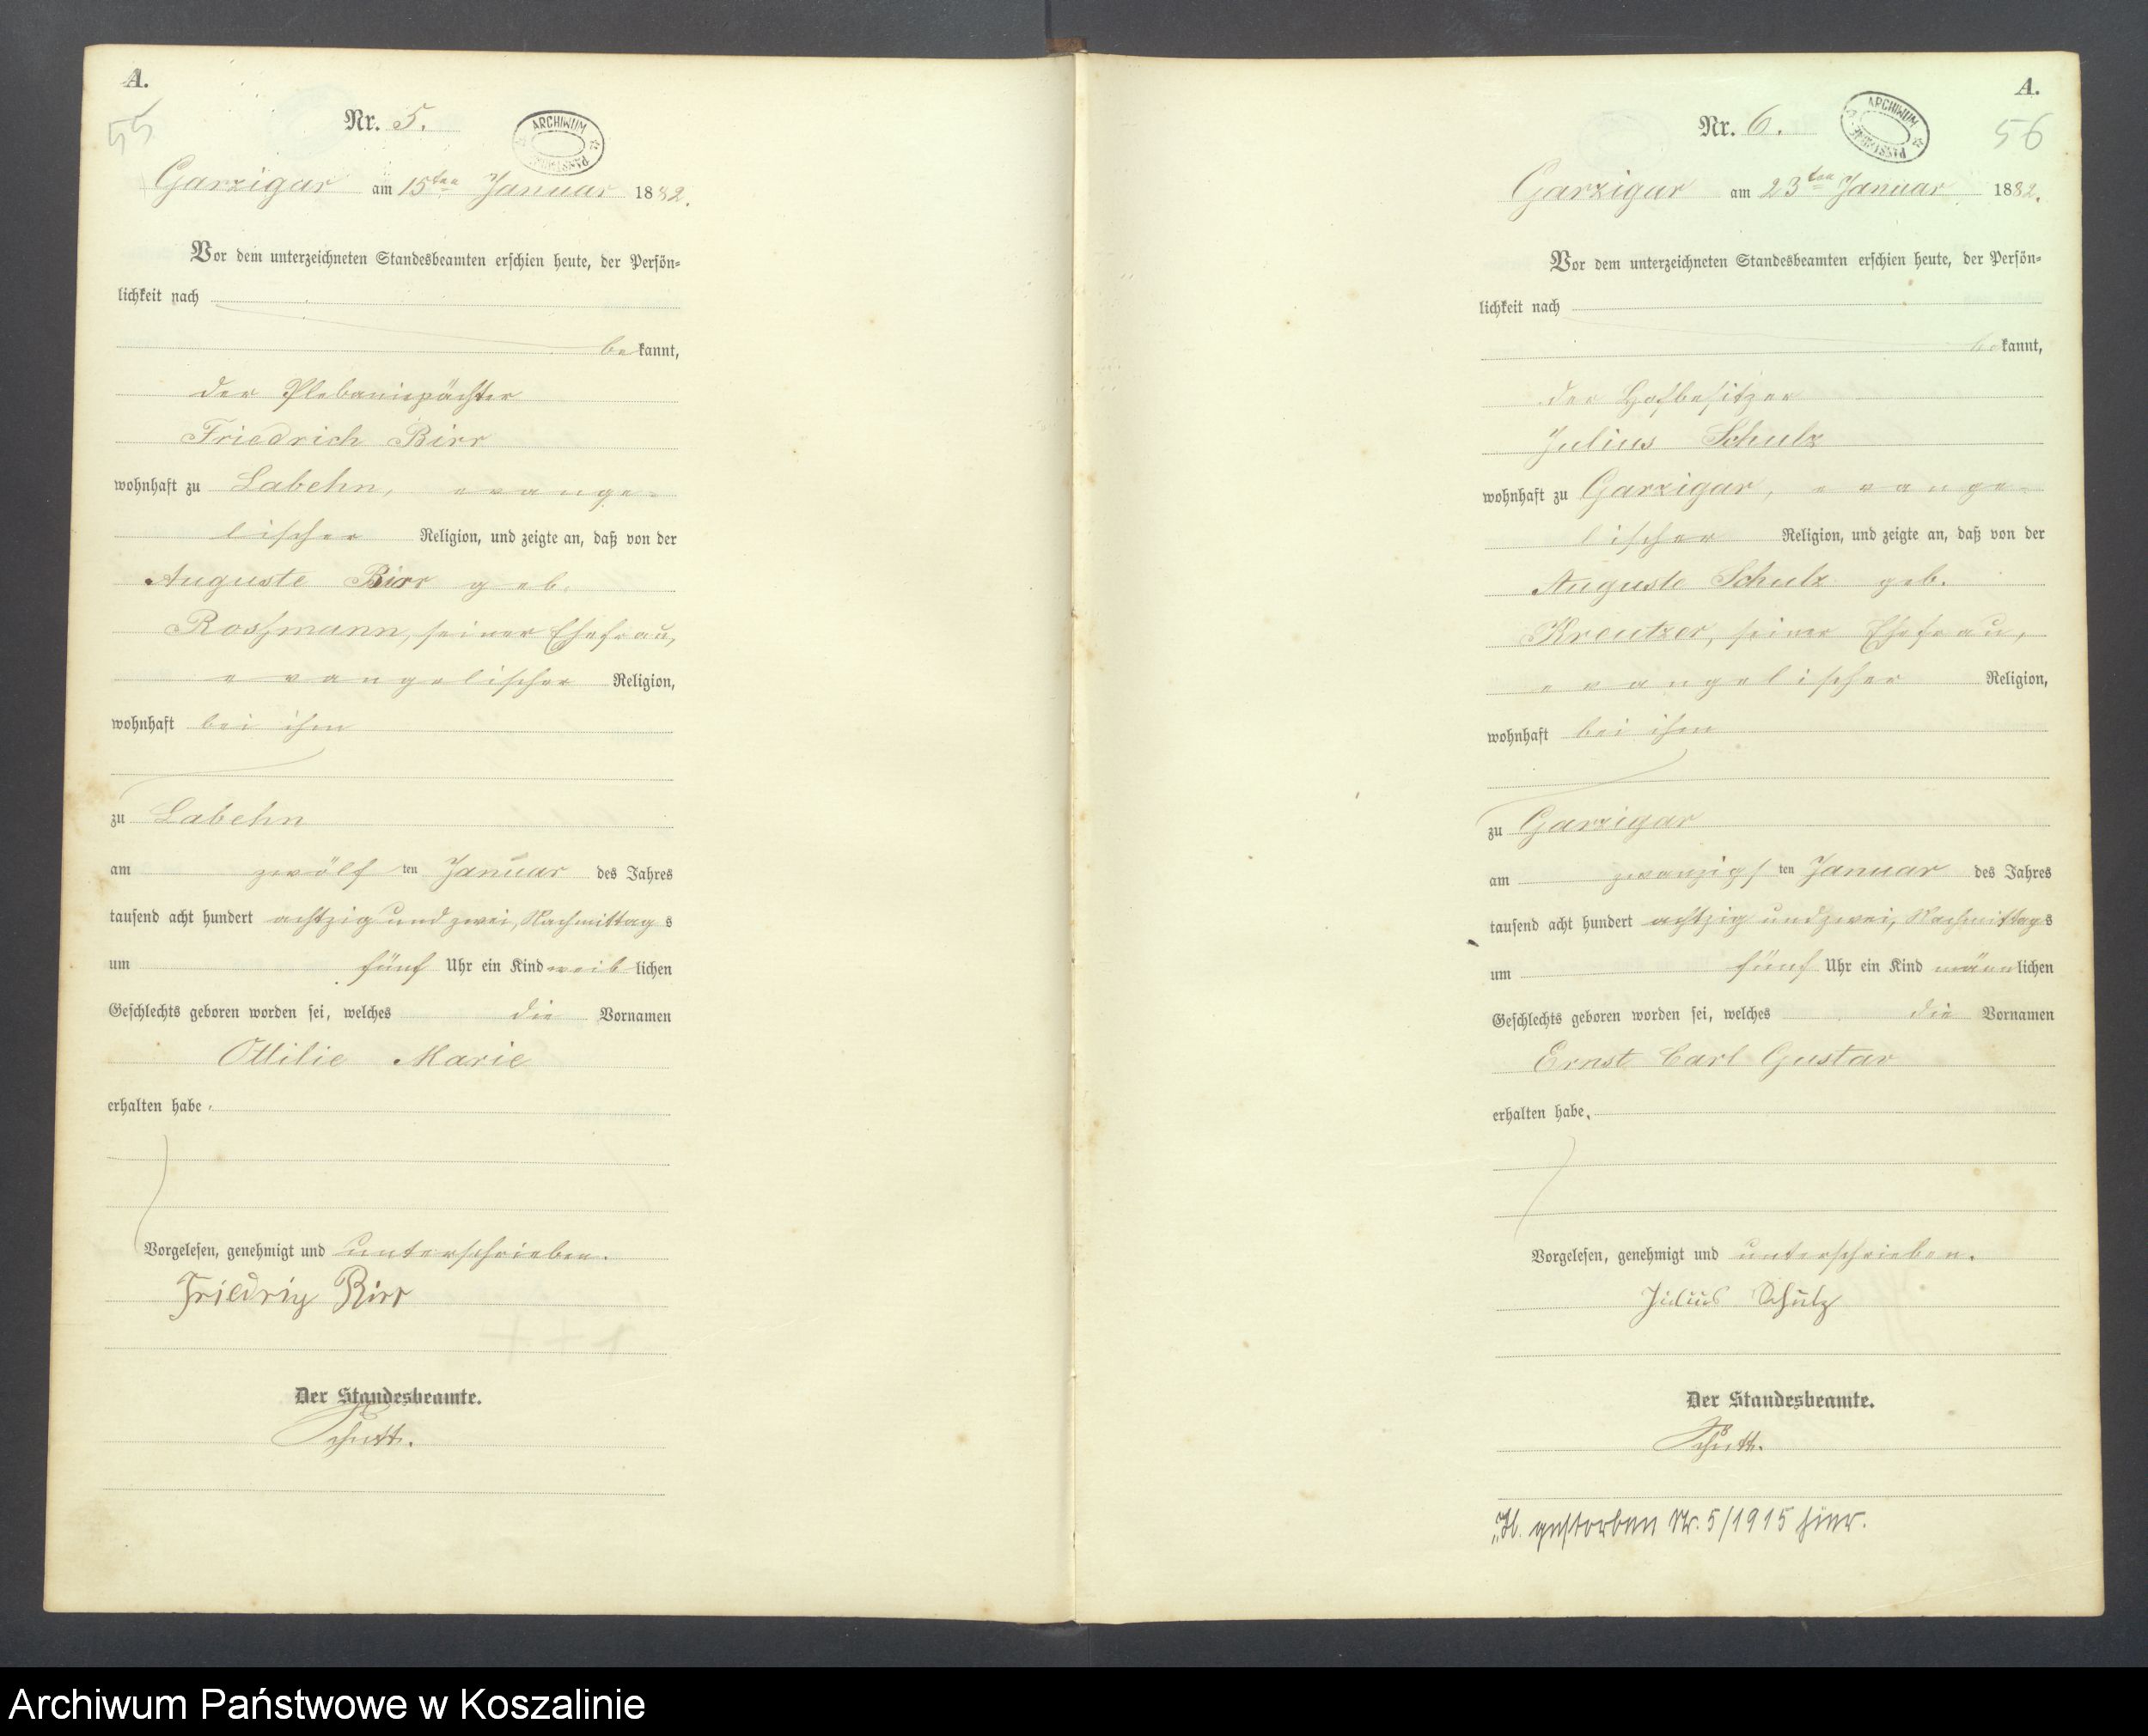 A.
55
Nr. 5.
ARCHIWUM
Garzigar am 15ten Januar 1882.
Vor dem unterzeichneten Standesbeamten erschien heute, der Persön-
lichkeit nach
bekannt,
der Plebaniepächter
Friedrich Birr
wohnhaft zu Labehn, evange-
lischer Religion, und zeigte an, daß von der
Auguste Birr geb.
Roshmann, seiner Ehefrau,
evangelischer Religion,
wohnhaft bei ihm
zu Labehn
am zwölf ten Januar des Jahres
tausend acht hundert achtzig und zwei, Nachmittags
um fünf Uhr ein Kind weiblichen
Geschlechts geboren worden sei, welches die Vornamen
Ottilie Marie
erhalten habe.
Vorgelesen, genehmigt und unterschrieben.
Friedrig Birr
Der Standesbeamte.
A.
56
Nr. 6.
ARCHIWUM
Garzigar am 23ten Januar 1882.
Vor dem unterzeichneten Standesbeamten erschien heute, der Persön-
lichkeit nach
bekannt,
der Hofbesitzer
Julius Schulz
wohnhaft zu Garzigar, evange-
lischer Religion, und zeigte an, daß von der
Auguste Schulz geb.
Kreutzer, seiner Ehefrau,
evangelischer Religion,
wohnhaft bei ihm
zu Garzigar
am zwanzigs ten Januar des Jahres
tausend acht hundert achtzig und zwei, Nachmittags
um fünf Uhr ein Kind männlichen
Geschlechts geboren worden sei, welches die Vornamen
Ernst Carl Gustav
erhalten habe.
Vorgelesen, genehmigt und unterschrieben.
Julius Schulz
Der Standesbeamte.
gestorben Nr. 5/1915 hier.
Archiwum Państwowe w Koszalinie